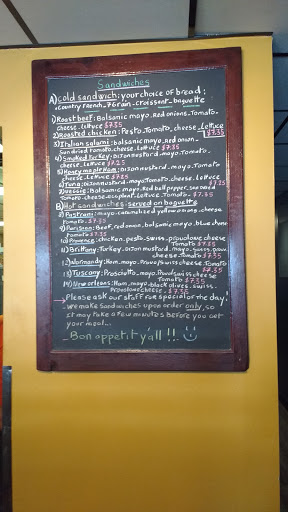 Sandwiches
A) Cold sandwich: your choice of bread:
country french - 7 Grain - croissant - baguette
1) Roast beef: Balsamic mayo. Red onions. Tomato.
cheese. Lettuce $7.35
2) Roasted chicken: Pesto. Tomato. cheese. Lettuce
$7.35
3) Italian salami: balsamic mayo. red onion.
sun dried tomato. cheese. Lettuce $7.35
4) Smoked Turkey: Dijon mustard. mayo. Tomato.
cheese. Lettuce $7.25
5) Honey maple Ham: Dijon mustard. mayo. Tomato.
cheese. Lettuce $7.25
6) Tuna: Dijon mustard. mayo. Tomato. cheese. Lettuce
$7.25
7) Veggie: Balsamic mayo. Red bell pepper.
Tomato. cheese. eggplant. Lettuce. Tomato. $7.35
B) Hot sandwiches: served on baguette
8) Pastrami: mayo. caramelized yellow onions. cheese.
Tomato. $7.35
9) Parisian: Beef, red onion. balsamic mayo. blue
Tomato $7.35
10) Provence: chicken. pesto. swiss. provolone cheese
Tomato $7.35
11) Brittany: Turkey. Dijon mustard. mayo. swiss.
Tomato $7.35
12) Normandy: Ham. mayo. Provo/swiss cheese. Tomato
$7.35
13) Tuscany: Prosciutto. mayo. Provo/swiss cheese
Tomato $7.35
14) New orleans: Ham. mayo. black olives. swiss.
Provolone cheese. $7.35
Please ask our staff for special of the day!
We make sandwiches upon order only, so
it may take a few minutes before you get
your meal...
Bon appetit y'all!!